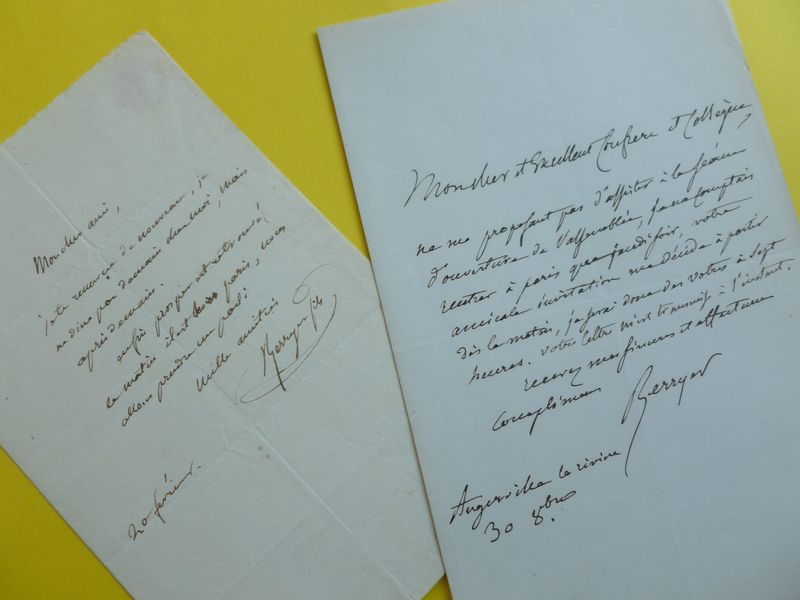 Mon cher ami,
je te remercie de nouveau, je
ne dine pas demain chez moi, mais
après demain.
enfin prosper est retrouvé
le matin il est à paris, nous
allons prendre un parti.
Mille amitiés
Berryer fils
20 février.
Mon cher et Excellent Confrere et Collègue,
ne me proposant pas d'assister à la séance
d'ouverture de l'assemblée, je ne comptais
rentrer à paris que jeudi soir, votre
amicale invitation me décide à partir
dès le matin, je serai donc des votres à sept
heures. votre lettre m'est transmise à l'instant.
recevez mes sinceres et affectueux
complimens
Berryer
Angerville la riviere
30 8bre